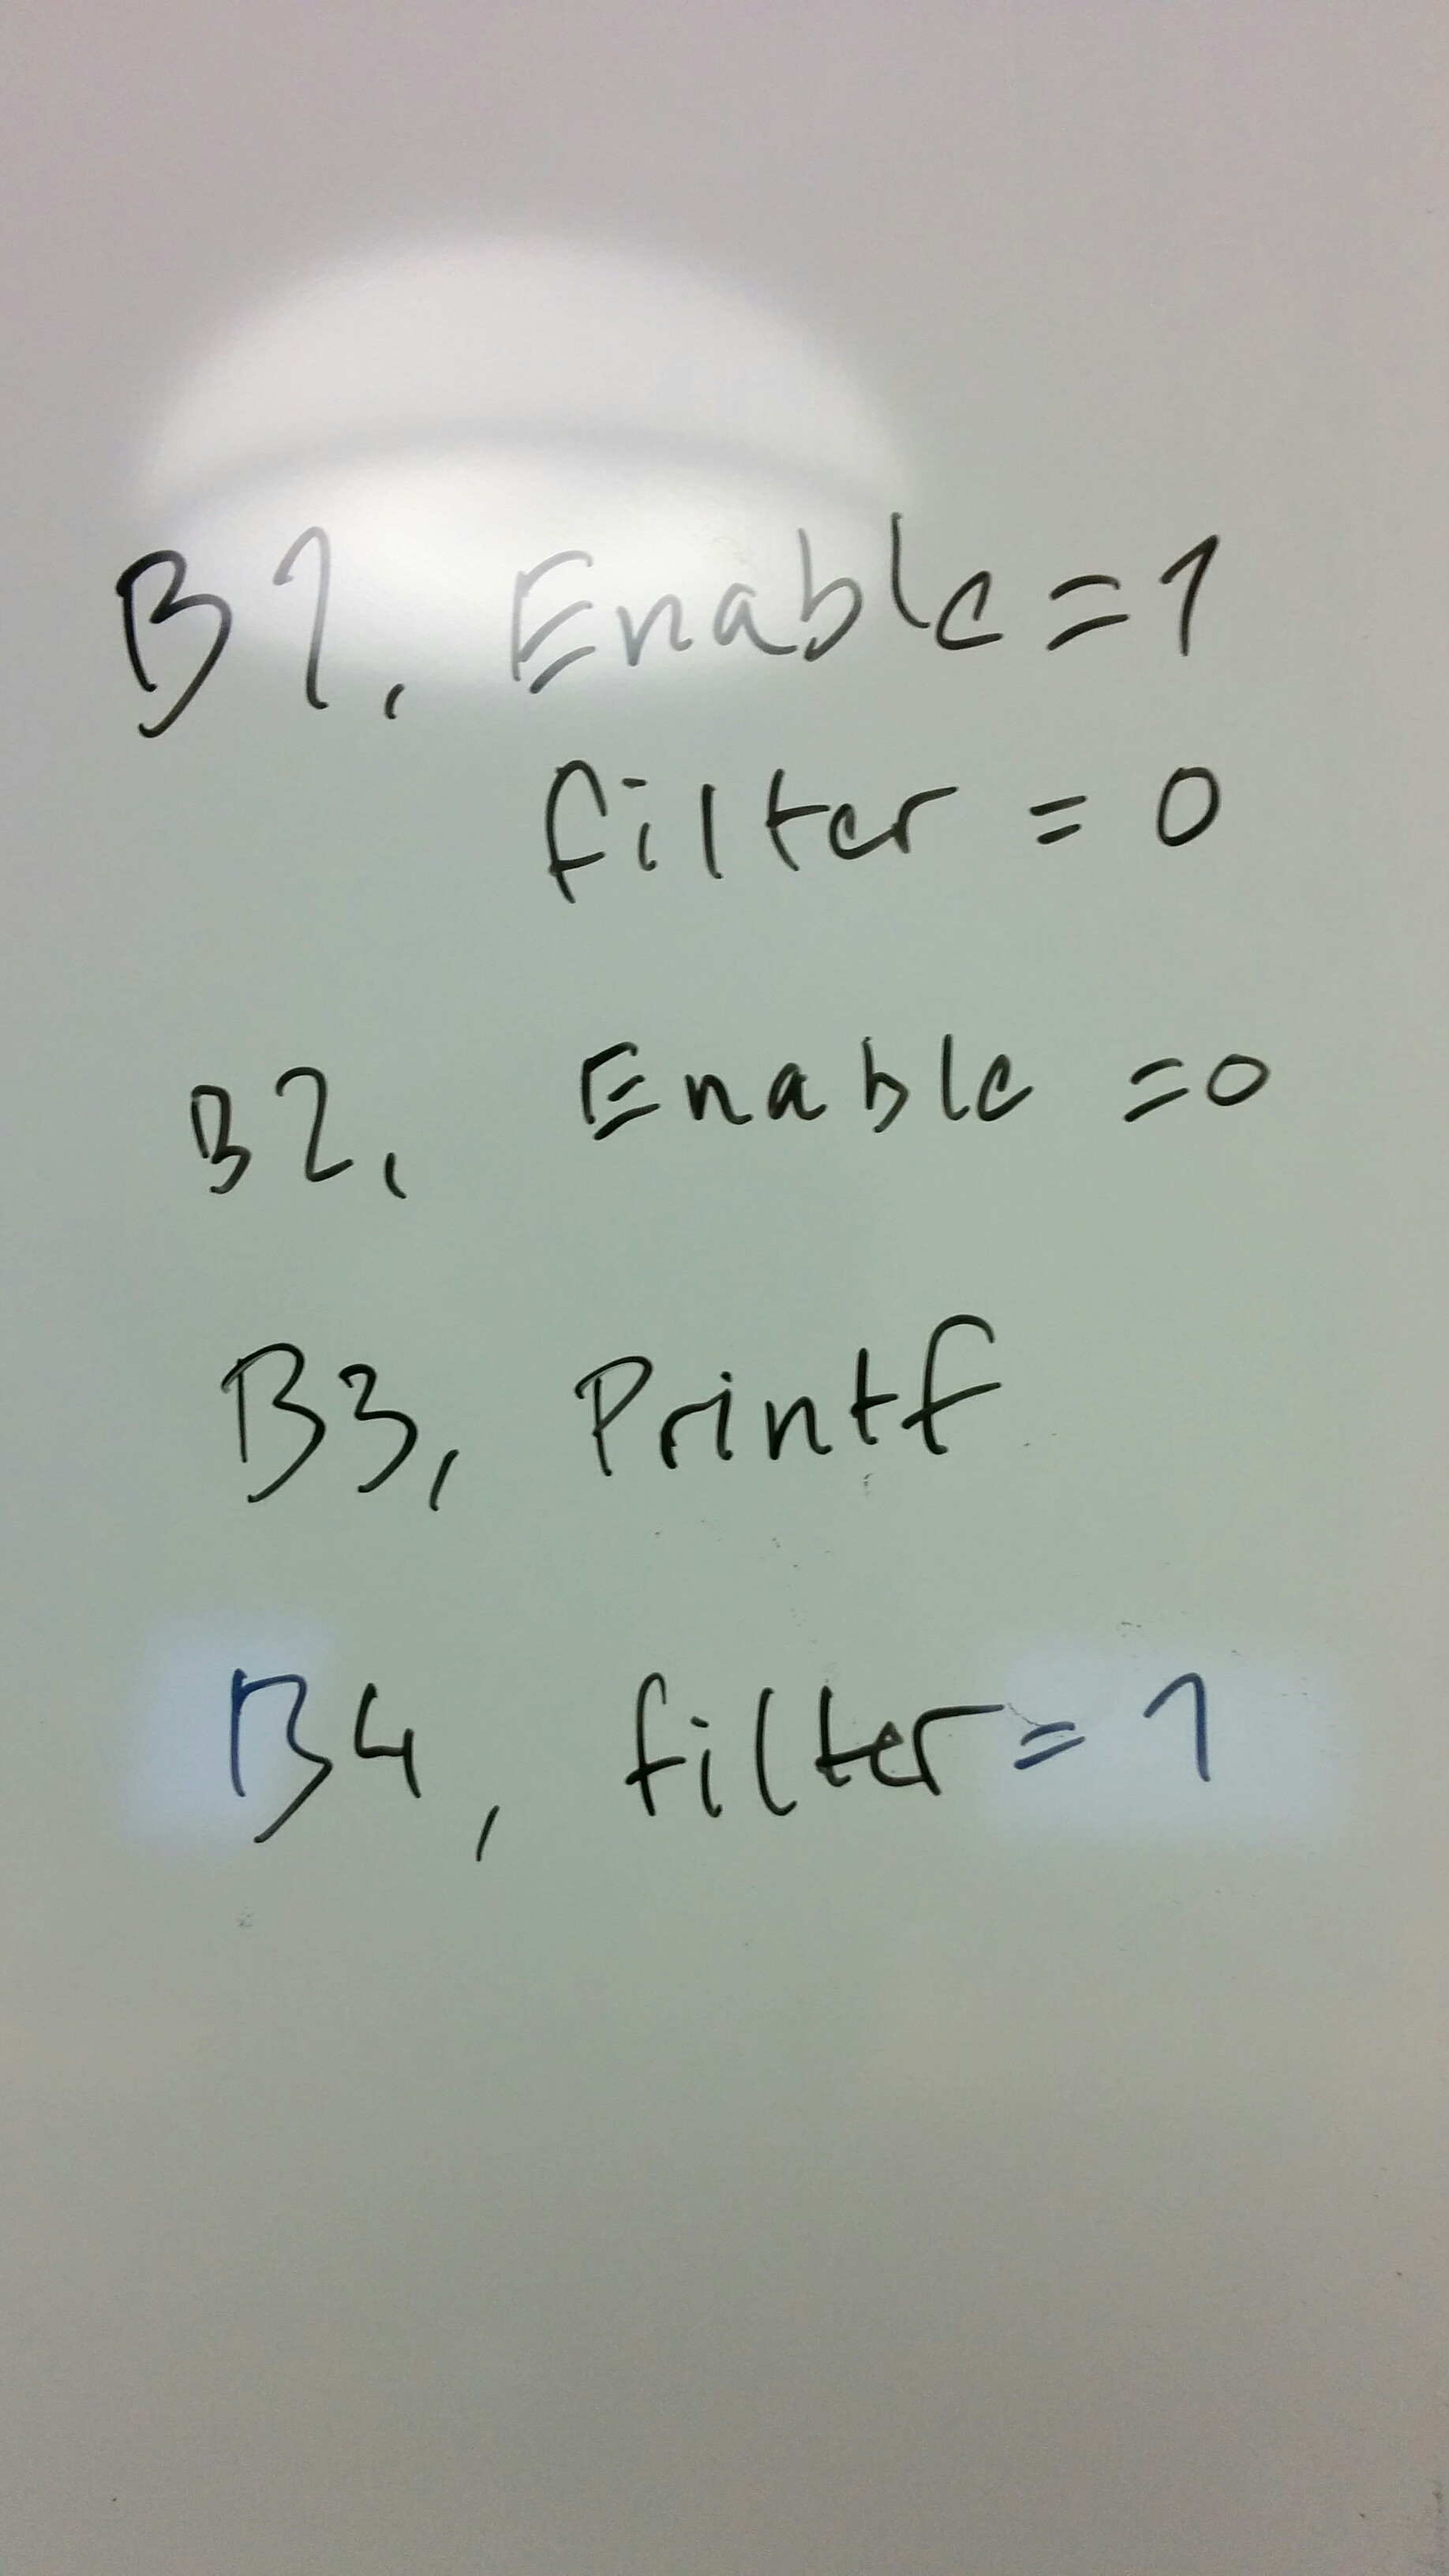 B1, Enable=1
filter = 0
B2, Enable =0
B3, Printf
B4, filter=1